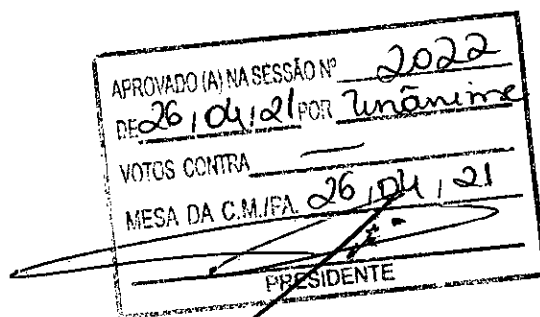 APROVADO (A) NA SESSÃO Nº 2022
DE 26,04,21 POR Unânime
VOTOS CONTRA —
MESA DA C.M./PA. 26,04,21
PRESIDENTE